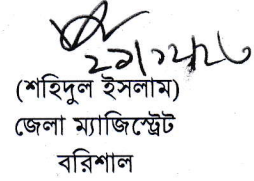 (শহিদুল ইসলাম)
জেলা ম্যাজিস্ট্রেট
বরিশাল